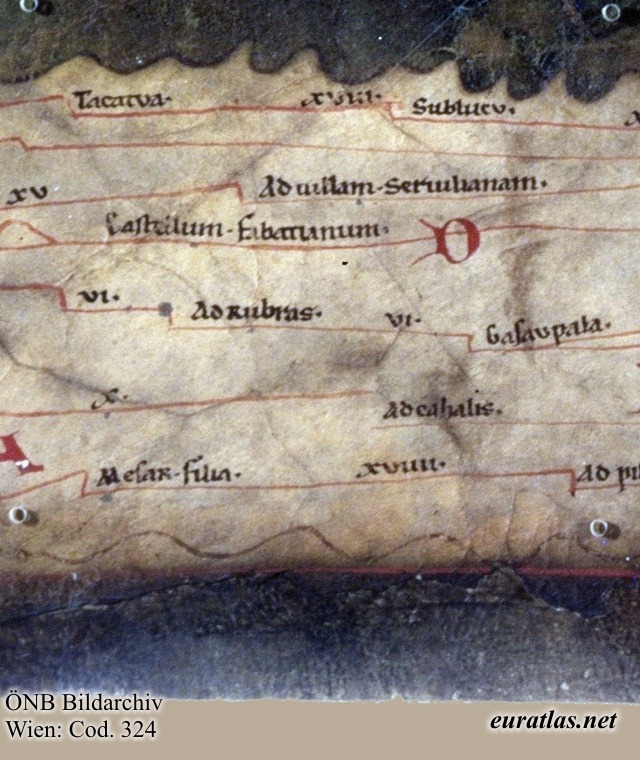 Tacatva· xviiii· Sublucv.
x
xv Ad uillam·Seruilianam·
Castellum·Fabatianum· O
vi· Ad Rubras· vi· Gasavpala·
x· Ad cahalis.
A
Mesar·filia· xviiii· Ad pi
ÖNB Bildarchiv
Wien: Cod. 324
euratlas.net